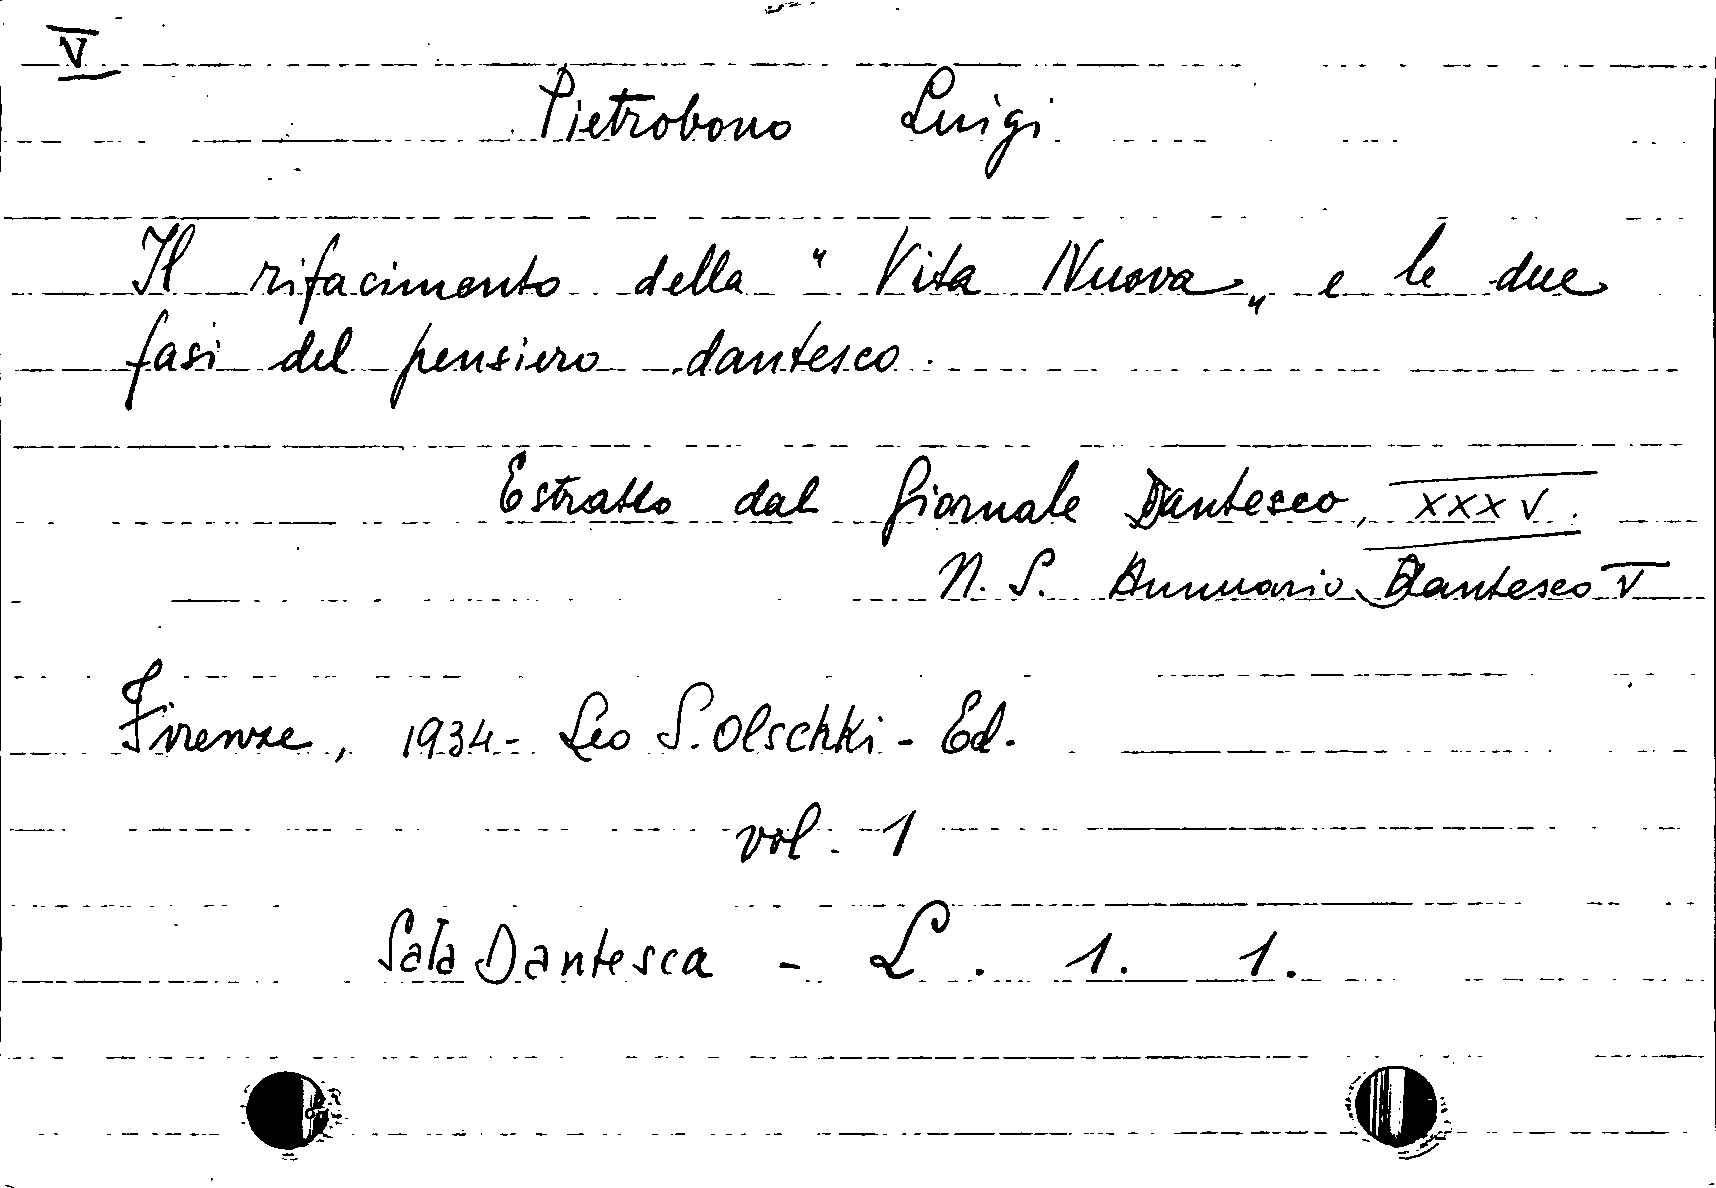 V
Pietrobono Luigi
Il rifacimento della "Vita Nuova" e le due
fasi del pensiero dantesco.
Estratto dal Giornale Dantesco, XXXV.
N. S. Annuario Dantesco V
Firenze, 1934 - Leo S. Olschki - Ed.
vol. 1
Sala Dantesca - L. 1. 1.